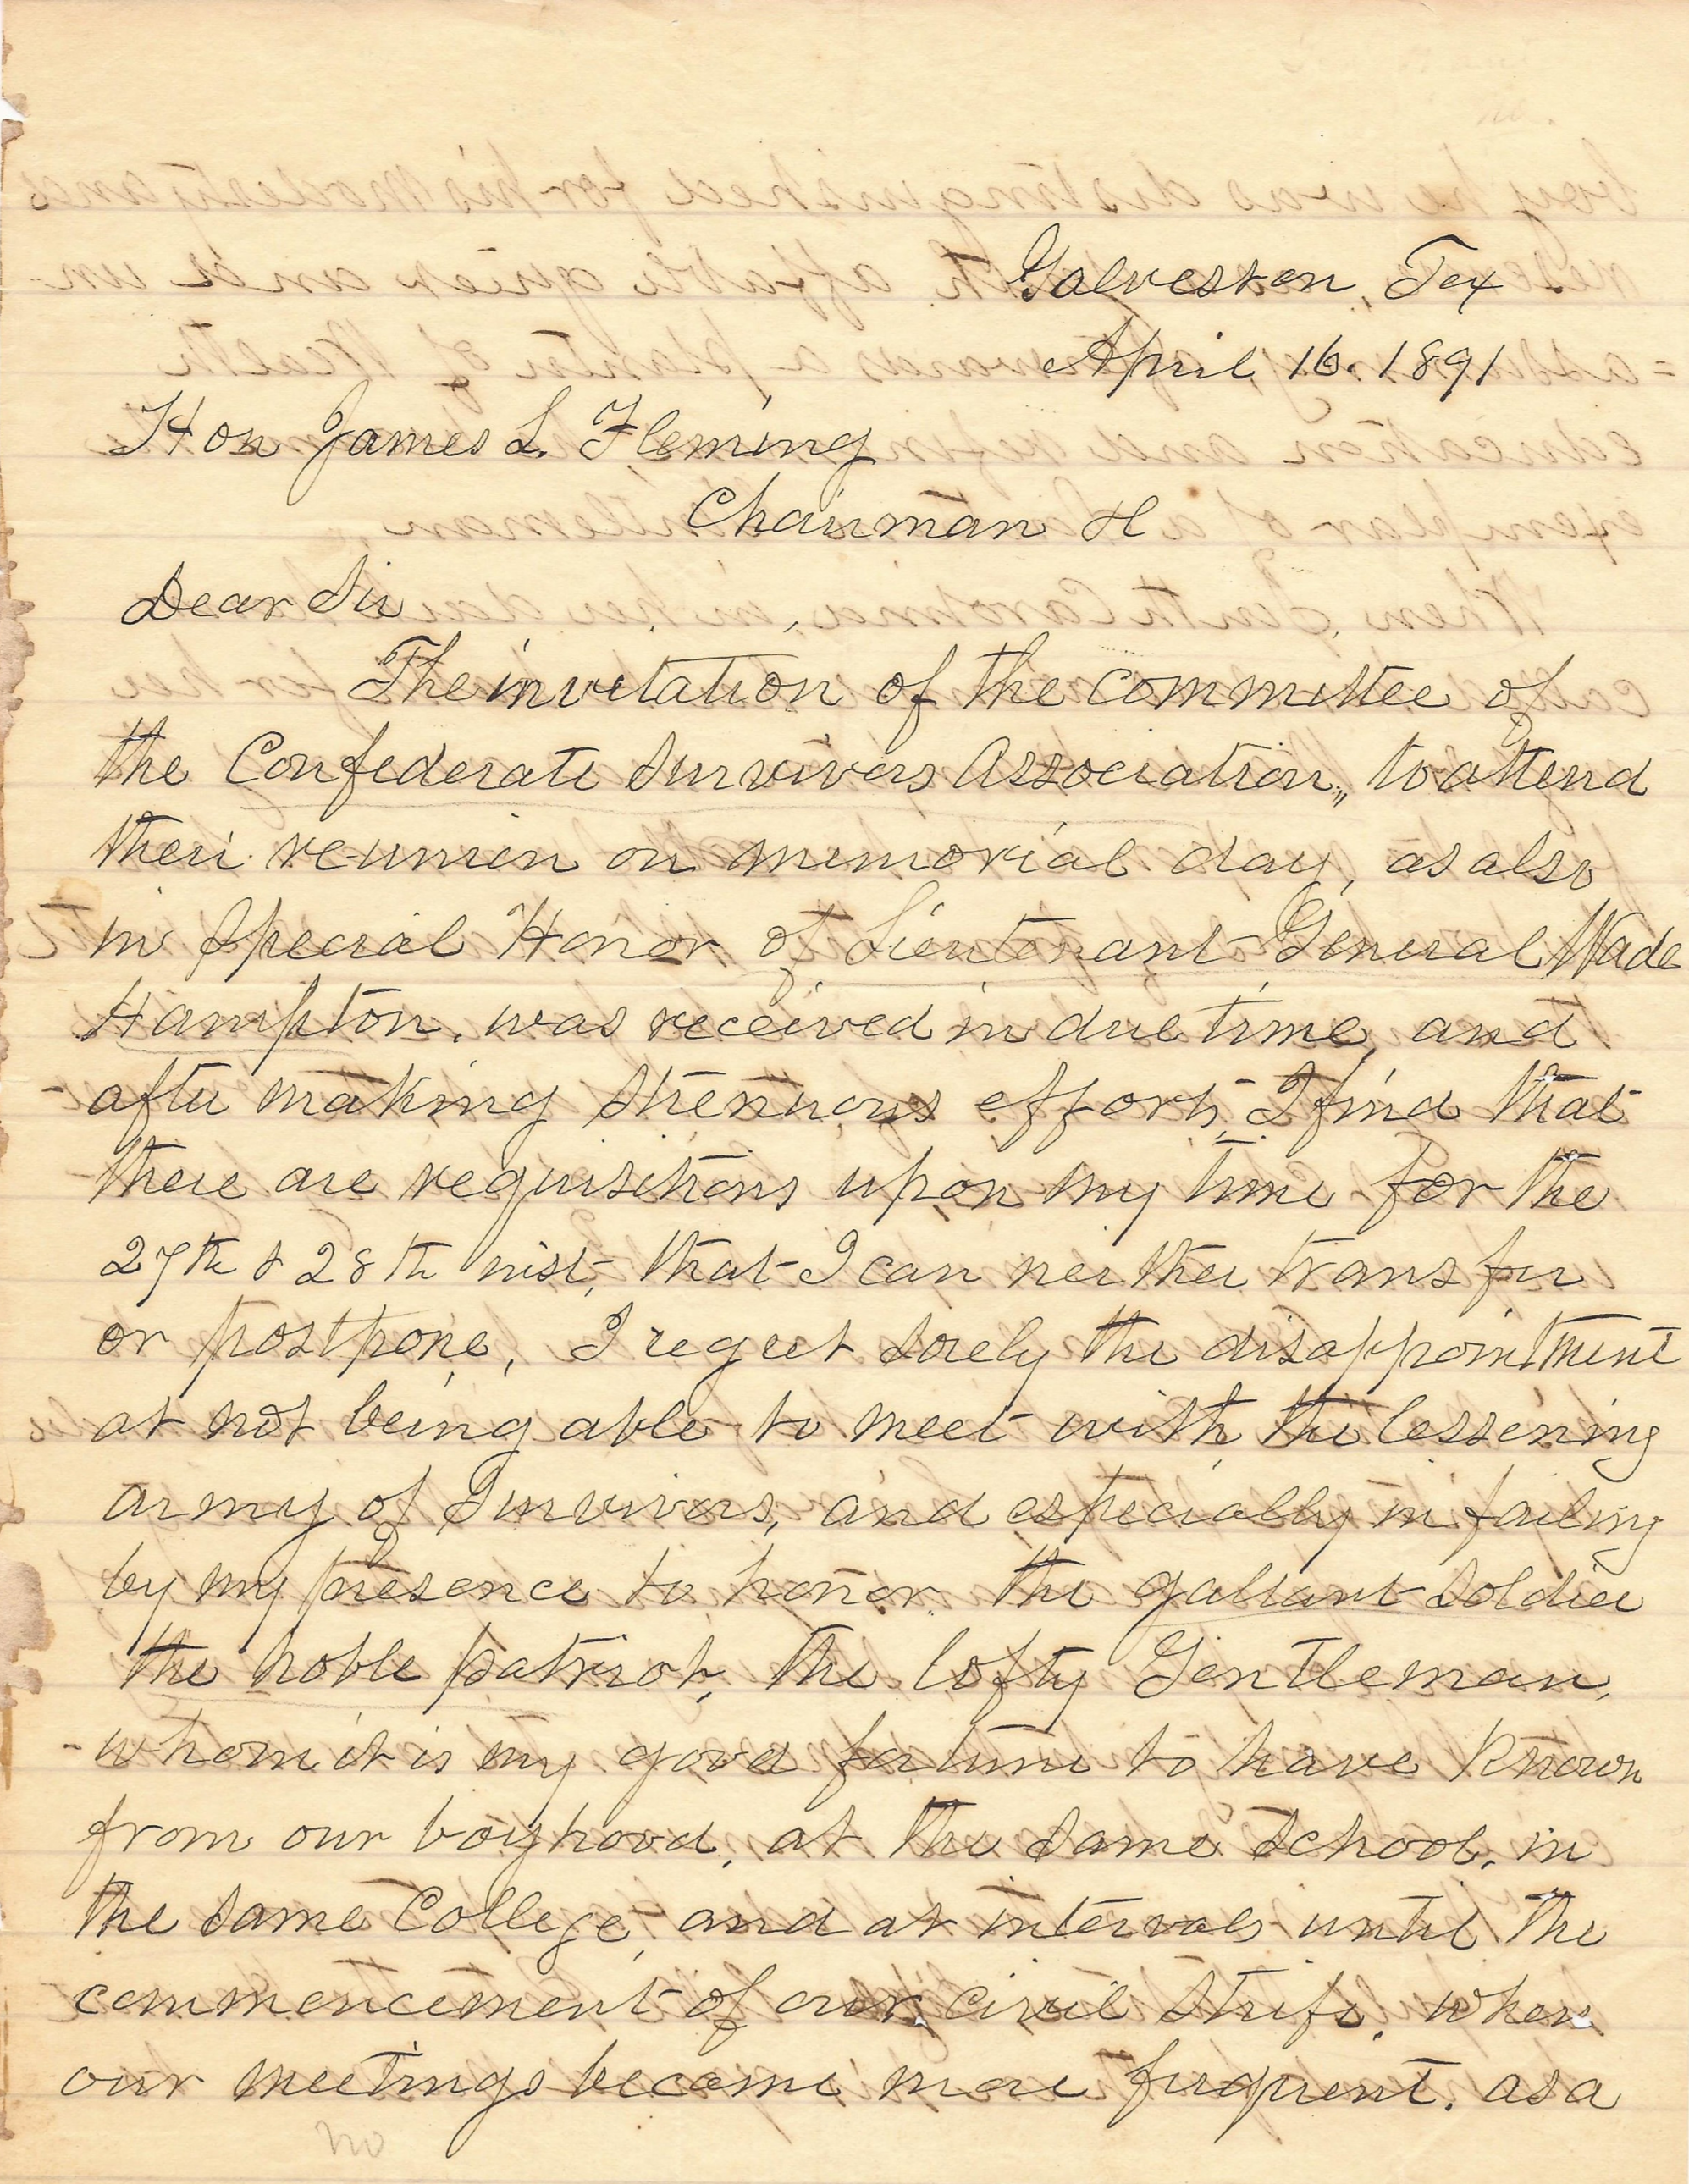 Galveston, Tex
April 16. 1891
Hon James L. Fleming
Chairman &c
Dear Sir
The invitation of the committee of
the Confederate Survivors Association,, to attend
their reunion on memorial day, as also
in Special Honor of Lieutenant General Wade
Hampton, was received in due time, and
after making strenuous efforts, I find that
there are requisitions upon my time for the
27th & 28th inst, that I can neither transfer
or postpone, I regret sorely the disappointment
at not being able to meet with the lessening
army of Survivors, and especially in failing
by my presence to honor the gallant soldier
the noble patriot, the lofty Gentleman,
whom it is my good fortune to have known
from our boyhood, at the same school, in
the same College, and at intervals until the
commencement of our civil strife, when
our meetings became more frequent. as a